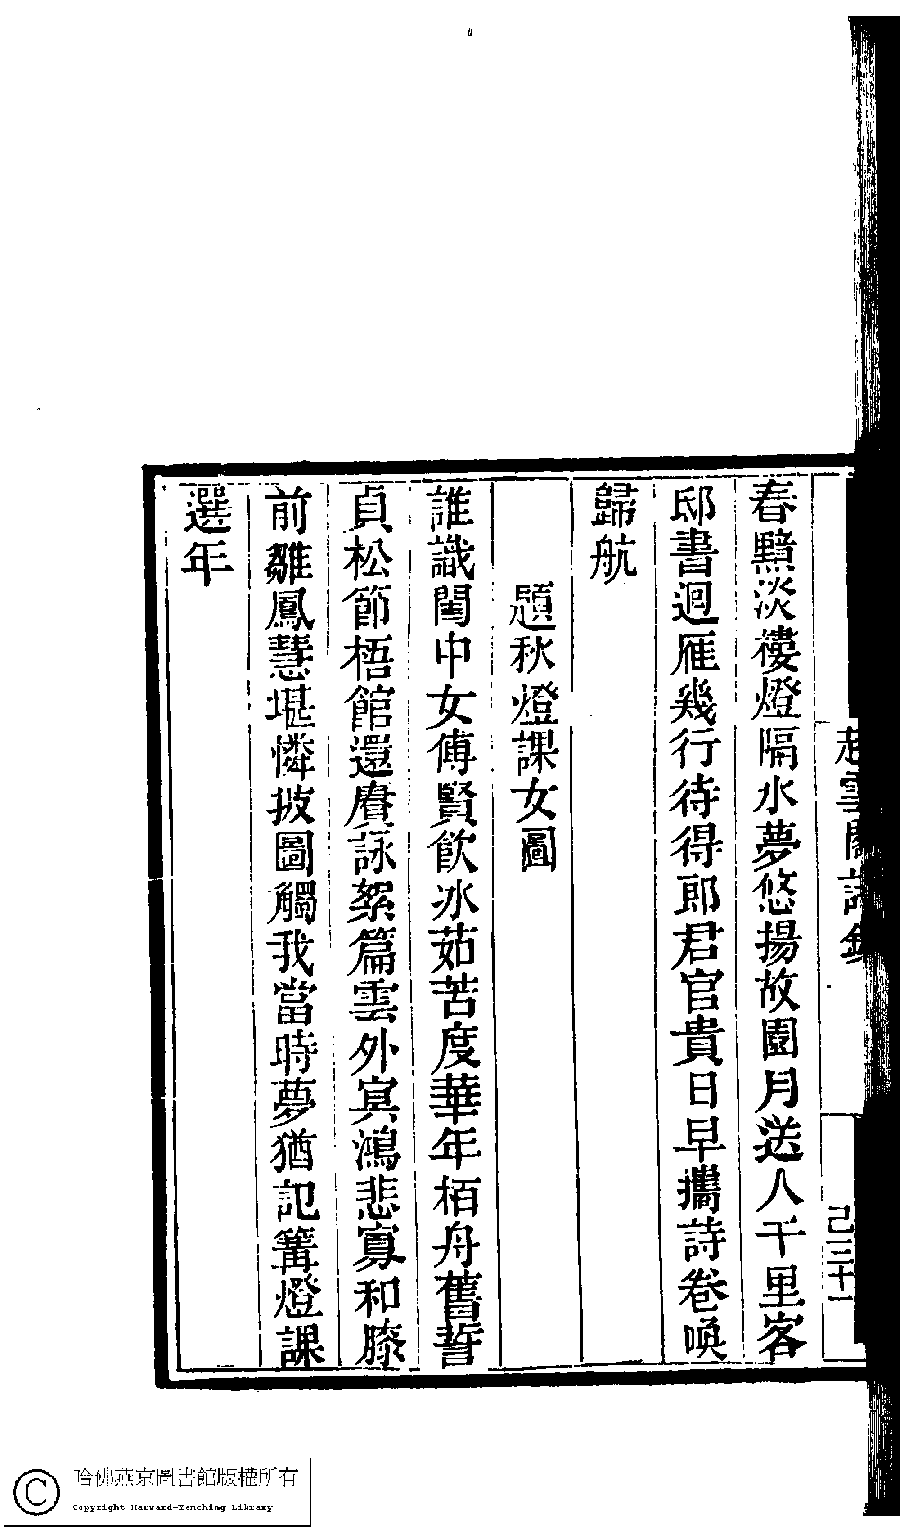 春黯淡褸燈隔水夢悠揚故園月送人千里客
邸書迴雁幾行待得郎君官貴日早攜詩卷喚
歸航
題秋燈課女圖
誰識閨中女傅賢飲冰茹苦度華年栢舟舊誓
貞松節梧館還賡詠絮篇雲外冥鴻悲寡和膝
前雛鳳慧堪憐披圖觸我當時夢猶記篝燈課
選年
雲
己三十一
哈佛燕京圖書館版權所有
Copyright Harvard-Yenching Library